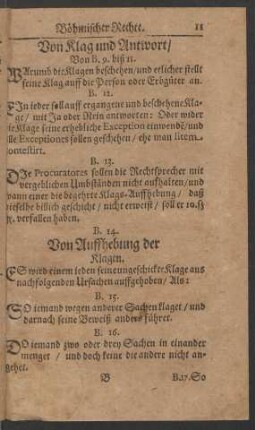 Böhmischer Rechte. 11
Von Klag und Antwort/
Von B. 9. biß 11.
WArumb die Klagen beschehen/ und etlicher stellt
seine Klag auff die Person oder Erbgüter an.
B. 12.
EIn jeder soll auff ergangene und beschehene Kla-
ge/ mit Ja oder Nein antworten: Oder wider
die Klage seine erhebliche Exception einwendē/ und
alle Exceptiones sollen geschehen/ ehe man litem
contestirt.
B. 13.
DIe Procuratores sollen die Rechtsprecher mit
vergeblichen Umbständen nicht auffhalten/ und
wann einer die begehrte Klags-Auffhebung/ daß
dieselbe billich geschicht/ nicht erweist/ soll er 10. ß
gr. verfallen haben.
B. 14.
Von Auffhebung der
Klagen.
ES wird einem jeden seine ungeschickte Klage aus
nachfolgenden Ursachen auffgehoben/ Als:
B. 15.
SO jemand wegen anderer Sachen klaget/ und
darnach seine Beweiß anders führet.
B. 16.
SO jemand zwo oder drey Sachen in einander
menget/ und doch keine die andere nicht an-
gehet.
B B. 17. So